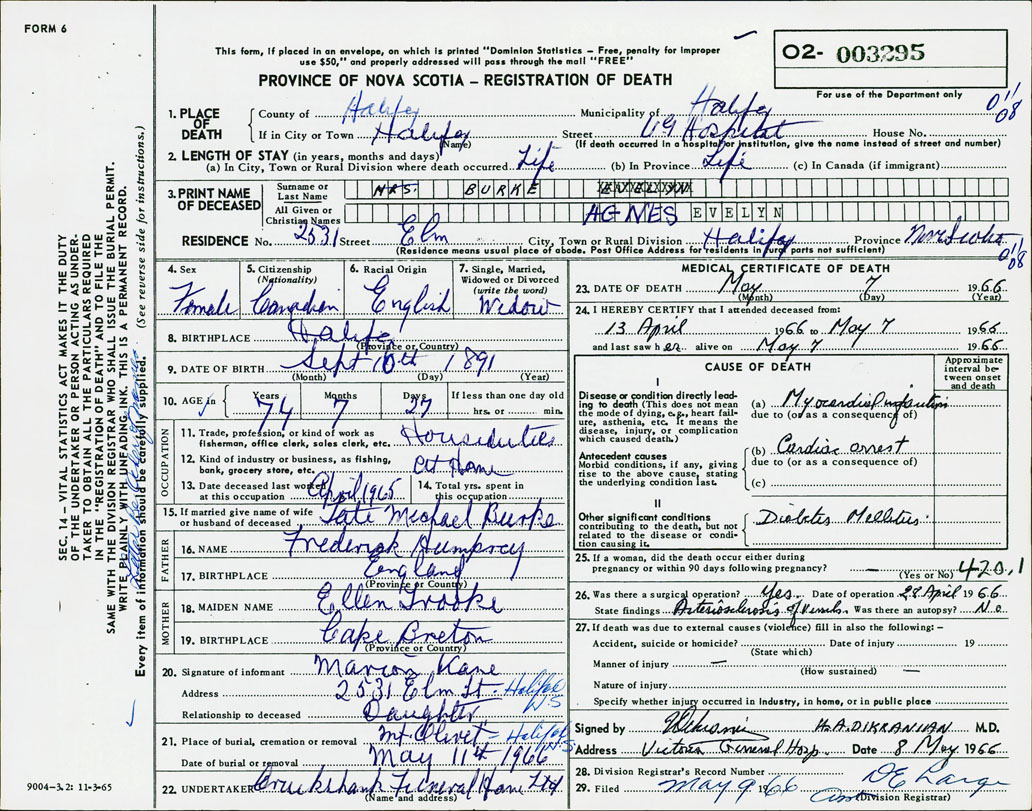 FORM 6
This form, if placed in an envelope, on which is printed "Dominion Statistics – Free, penalty for improper
use $50," and properly addressed will pass through the mail "FREE"
PROVINCE OF NOVA SCOTIA – REGISTRATION OF DEATH
O2- 003295
For use of the Department only
1. PLACE OF DEATH
County of Halifax Municipality of Halifax
If in City or Town Halifax Street VG Hospital House No.
(Name) (If death occurred in a hospital or institution, give the name instead of street and number)
2. LENGTH OF STAY (in years, months and days)
(a) In City, Town or Rural Division where death occurred Life (b) In Province Life (c) In Canada (if immigrant)
3. PRINT NAME OF DECEASED
Surname or Last Name MRS. BURKE
All Given or Christian Names AGNES EVELYN
RESIDENCE No. 2531 Street Elm City, Town or Rural Division Halifax Province Nova Scotia
(Residence means usual place of abode. Post Office Address for residents in rural parts not sufficient)
018
018
4. Sex
Female
5. Citizenship (Nationality)
Canadian
6. Racial Origin
English
7. Single, Married, Widowed or Divorced (write the word)
Widow
8. BIRTHPLACE Halifax
(Province or Country)
9. DATE OF BIRTH Sept 10th 1891
(Month) (Day) (Year)
10. AGE in Years Months Days If less than one day old
74 7 27 hrs. or min.
OCCUPATION
11. Trade, profession, or kind of work as fisherman, office clerk, sales clerk, etc. Houseduties
12. Kind of industry or business, as fishing, bank, grocery store, etc. At Home
13. Date deceased last worked at this occupation April 1965
14. Total yrs. spent in this occupation
15. If married give name of wife or husband of deceased Late Michael Burke
FATHER
16. NAME Frederick Humprey
17. BIRTHPLACE England
(Province or Country)
MOTHER
18. MAIDEN NAME Ellen
19. BIRTHPLACE Cape Breton
(Province or Country)
20. Signature of informant Marion Kane
Address 2531 Elm St. Halifax NS
Relationship to deceased Daughter
21. Place of burial, cremation or removal Mt. Olivet – Halifax NS
Date of burial or removal May 11th 1966
22. UNDERTAKER Cruikshank Funeral Home Ltd
(Name and address)
MEDICAL CERTIFICATE OF DEATH
23. DATE OF DEATH May 7 1966
(Month) (Day) (Year)
24. I HEREBY CERTIFY that I attended deceased from:
13 April 1966 to May 7 1966
and last saw her alive on May 7 1966
CAUSE OF DEATH
Approximate interval between onset and death
I
Disease or condition directly leading to death (This does not mean the mode of dying, e.g., heart failure, asthenia, etc. It means the disease, injury, or complication which caused death.)
(a) Myocardial infarction
due to (or as a consequence of)
Antecedent causes
Morbid conditions, if any, giving rise to the above cause, stating the underlying condition last.
(b) Cardiac arrest
due to (or as a consequence of)
(c)
II
Other significant conditions contributing to the death, but not related to the disease or condition causing it.
Diabetes Mellitus
25. If a woman, did the death occur either during
pregnancy or within 90 days following pregnancy? —
(Yes or No) 420.1
26. Was there a surgical operation? Yes. Date of operation 28 April 1966
State findings Arteriosclerosis of vessels Was there an autopsy? No
27. If death was due to external causes (violence) fill in also the following:–
Accident, suicide or homicide? Date of injury 19
(State which)
Manner of injury —
(How sustained) —
Nature of injury
Specify whether injury occurred in Industry, in home, or in public place
Signed by H.A. DIKRANIAN M.D.
Address Victoria General Hosp. Date 8 May 1966
28. Division Registrar's Record Number
29. Filed May 9 1966
(Division Registrar)
SEC. 14 – VITAL STATISTICS ACT MAKES IT THE DUTY
OF THE UNDERTAKER OR PERSON ACTING AS UNDER-
TAKER TO OBTAIN ALL THE PARTICULARS REQUIRED
IN THE "REGISTRATION OF DEATH" AND TO FILE THE
SAME WITH THE DIVISION REGISTRAR WHO SHALL ISSUE THE BURIAL PERMIT.
WRITE PLAINLY WITH UNFADING INK. THIS IS A PERMANENT RECORD.
Every item of information should be carefully supplied. (See reverse side for instructions.)
9004-3.2: 11-3-65